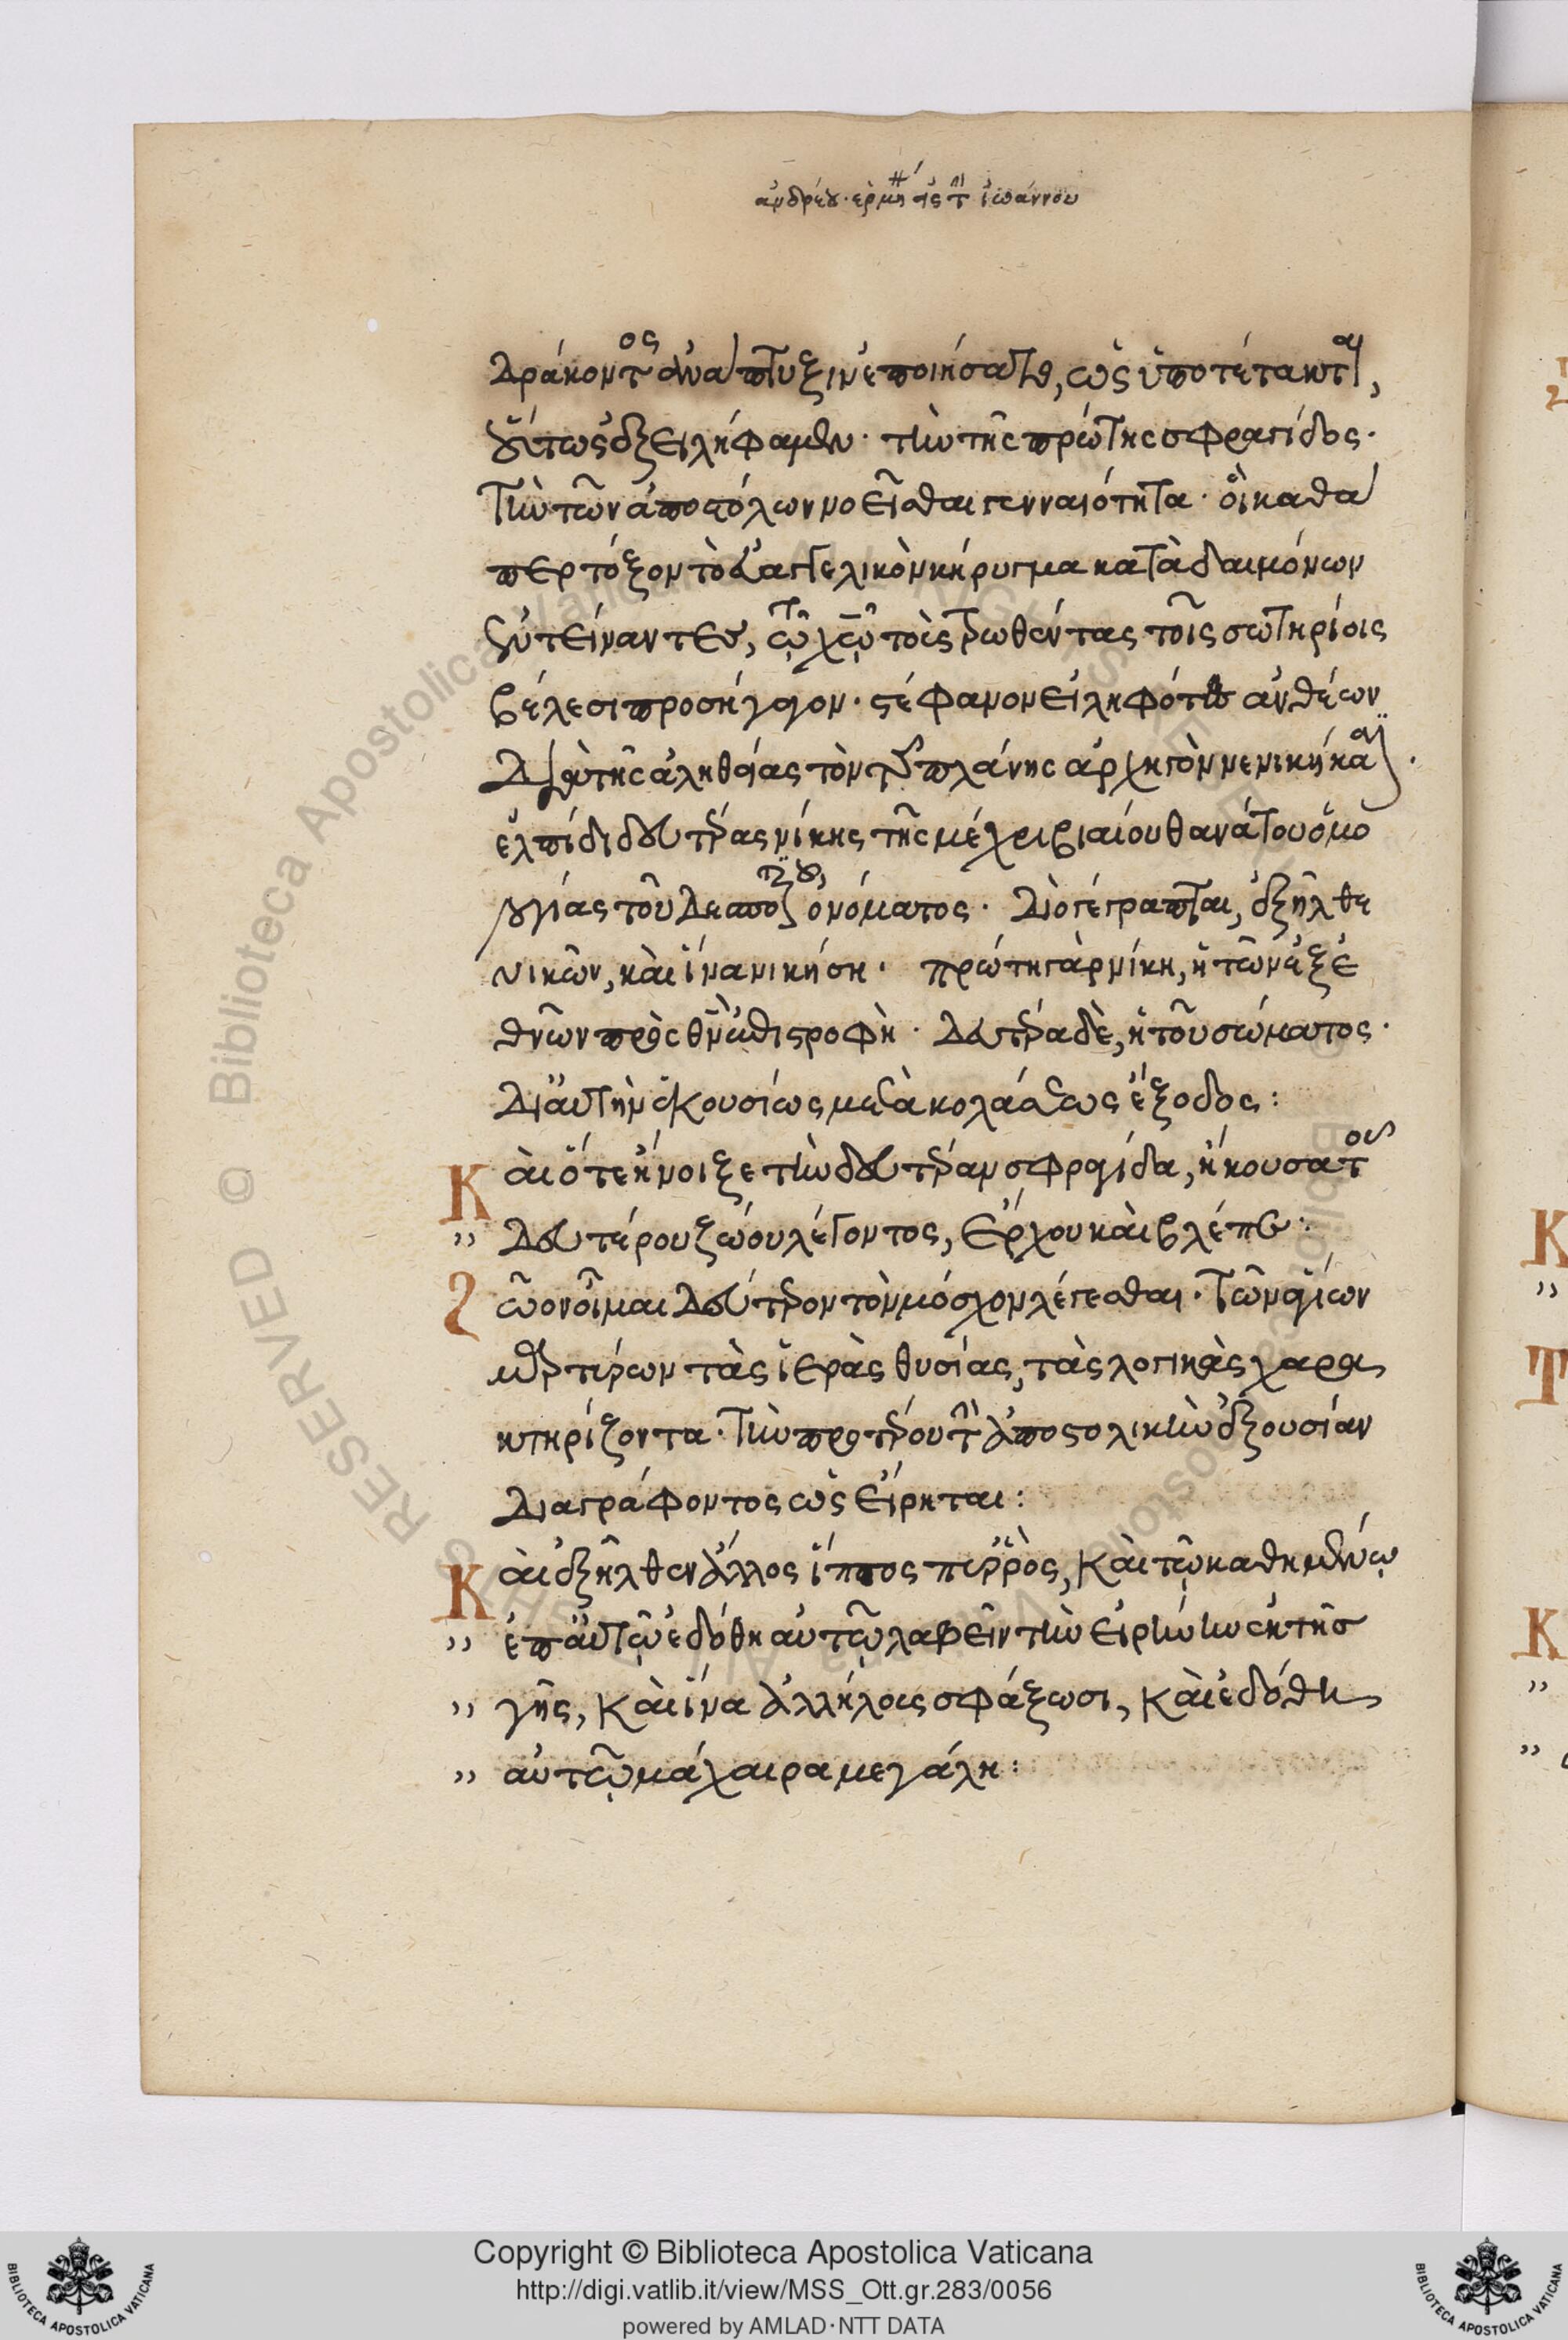 ἀνδρέου · ἑρμη εἰς τ ἰωάννου
δράκοντος ἀνάπτυξιν ἐποιήσατο, ὡς ὑποτέτακται,
οὕτως ἐξειλήφαμεν · τὴν τῆς πρώτης σφραγίδος ·
τὴν τῶν ἀποστόλων νοεῖσθαι γενναιότητα · οἳ καθά
περ τόξον τὸ εὐαγγελικὸν κήρυγμα κατὰ δαιμόνων
ἐντείναντες, τῷ χῷ τοὺς τρωθέντας τοῖς σωτηρίοις
βέλεσι προσήγαγον · στέφανον εἰληφότες ἀνθέων
διὰ τῆς ἀληθείας τὸν τῆς πλάνης ἀρχηγὸν νενικηκέναι ·
ἐλπίδι δευτέρας νίκης τῆς μέχρι βιαίου θανάτου ὁμο
λογίας τοῦ δεσποτικοῦ, ὀνόματος · διὸ γέγραπται, ἐξῆλθε
νικῶν, καὶ ἵνα νικήσῃ · πρώτη γὰρ νίκη, ἡ τῶν ἐξ ἐ
θνῶν πρὸς θν ἐπιστροφὴ · δευτέρα δὲ, ἡ τοῦ σώματος ·
δι αὐτὴν ἑκουσίως μετὰ κολάσεως ἔξοδος :
Καὶ ὅτε ἤνοιξε τὴν δευτέραν σφραγίδα, ἤκουσα τοῦ
" δευτέρου ζώου λέγοντος, ἔρχου καὶ βλέπε :
Ζῶον οἶμαι δεύτερον τὸν μόσχον λέγεσθαι · τῶν ἁγίων
μαρτύρων τὰς ἱερὰς θυσίας, τὰς λογικὰς χαρα
κτηρίζοντα · τὴν προτέρου τὴν ἀποστολικὴν ἐξουσίαν
διαγράφοντος ὡς εἴρηται :
Καὶ ἐξῆλθεν ἄλλος ἵππος πυῤῥὸς, καὶ τῷ καθημένῳ
" ἐπ αὐτῷ ἐδόθη αὐτῷ λαβεῖν τὴν εἰρήνην ἐκ τῆς
" γῆς, καὶ ἵνα ἀλλήλους σφάξωσι, καὶ ἐδόθη
" αὐτῷ μάχαιρα μεγάλη :
K
"
T
K
"
"
RESERVED © Biblioteca Apostolica Vaticana ALL RIGHTS RESERVED © Biblioteca Apostolica Vaticana ALL RIGHTS
Copyright © Biblioteca Apostolica Vaticana
http://digi.vatlib.it/view/MSS_Ott.gr.283/0056
powered by AMLAD·NTT DATA
BIBLIOTECA APOSTOLICA VATICANA
BIBLIOTECA APOSTOLICA VATICANA